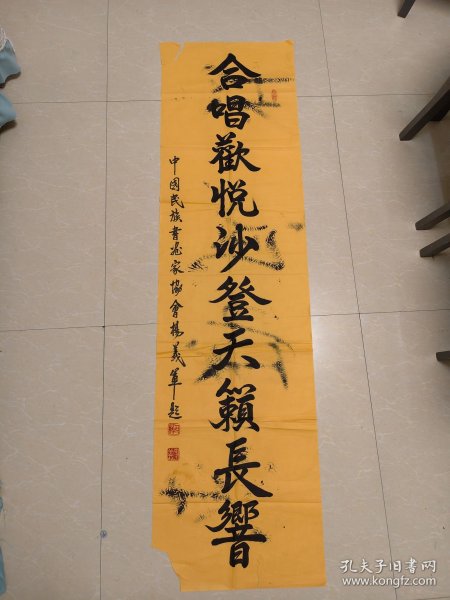 合唱歡悦沙登天籟長響
中國民族書畫家協會楊義軍題
孔夫子旧书网
www.kongfz.com